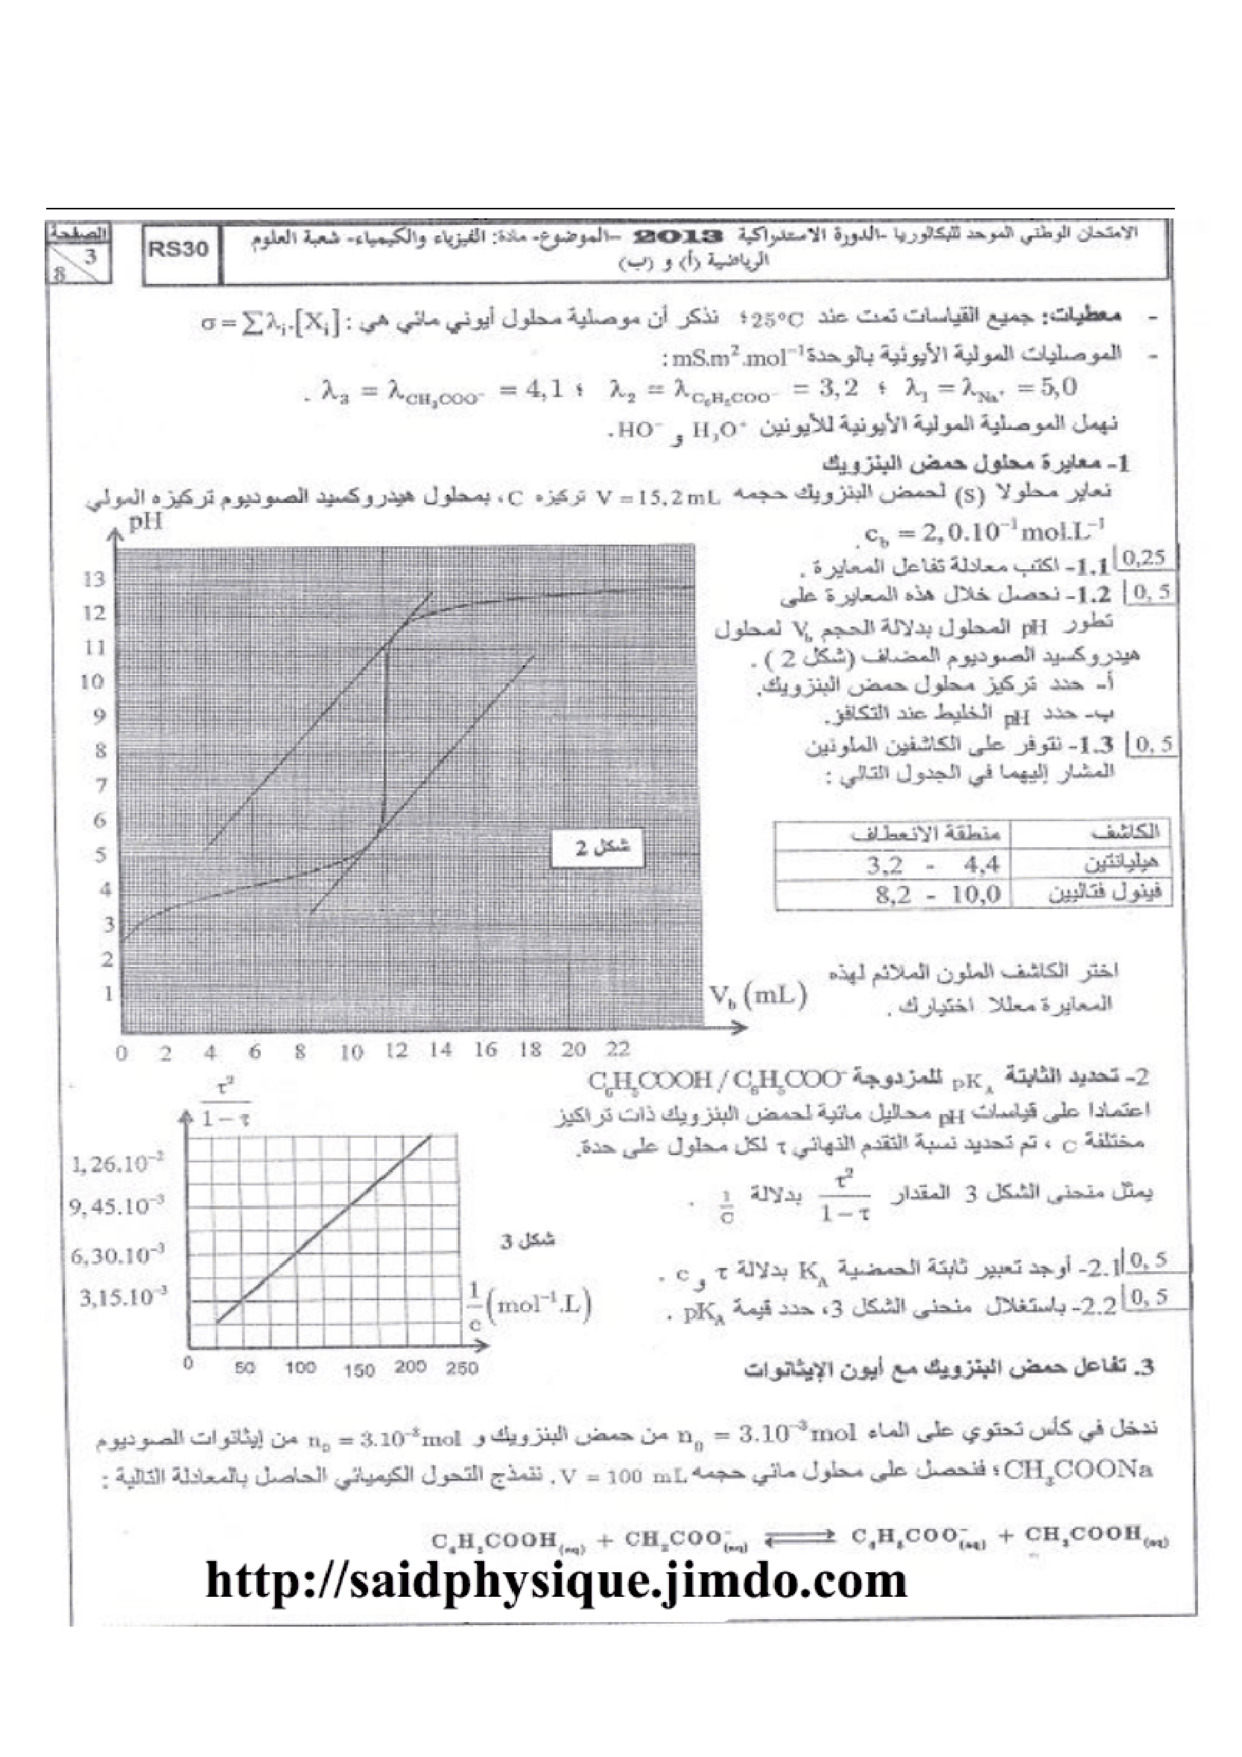 الصفحة
3
8
RS30
الامتحان الوطني الموحد للبكالوريا -الدورة الاستدراكية 2013 -الموضوع- مادة: الفيزياء والكيمياء- شعبة العلوم
الرياضية (أ) و (ب)
- معطيات: جميع القياسات تمت عند 25°C ؛ نذكر أن موصلية محلول أيوني مائي هي : σ = Σλi.[Xi]
- الموصليات المولية الأيونية بالوحدة mS.m².mol⁻¹ :
λ₁ = λNa⁺ = 5,0 ؛ λ₂ = λC₆H₅COO⁻ = 3,2 ؛ λ₃ = λCH₃COO⁻ = 4,1 .
نهمل الموصلية المولية الأيونية للأيونين H₃O⁺ و HO⁻.
1- معايرة محلول حمض البنزويك
نعاير محلولا (S) لحمض البنزويك حجمه V = 15,2 mL تركيزه C، بمحلول هيدروكسيد الصوديوم تركيزه المولي
c_b = 2,0.10⁻¹ mol.L⁻¹.
0,25 1.1- اكتب معادلة تفاعل المعايرة .
0,5 1.2- نحصل خلال هذه المعايرة على
تطور pH المحلول بدلالة الحجم V_b لمحلول
هيدروكسيد الصوديوم المضاف (شكل 2) .
أ- حدد تركيز محلول حمض البنزويك.
ب- حدد pH الخليط عند التكافؤ.
0,5 1.3- نتوفر على الكاشفين الملونين
المشار إليهما في الجدول التالي :
الكاشف منطقة الانعطاف
هيليانتين 3,2 - 4,4
فينول فتاليين 8,2 - 10,0
اختر الكاشف الملون الملائم لهذه
المعايرة معللا اختيارك .
pH
13
12
11
10
9
8
7
6
5
4
3
2
1
شكل 2
V_b (mL)
0 2 4 6 8 10 12 14 16 18 20 22
2- تحديد الثابتة pK_A للمزدوجة C₆H₅COOH / C₆H₅COO⁻
اعتمادا على قياسات pH محاليل مائية لحمض البنزويك ذات تراكيز
مختلفة c ، تم تحديد نسبة التقدم النهائي τ لكل محلول على حدة.
يمثل منحنى الشكل 3 المقدار τ²/(1-τ) بدلالة 1/c .
0,5 2.1- أوجد تعبير ثابتة الحمضية K_A بدلالة τ و c .
0,5 2.2- باستغلال منحنى الشكل 3، حدد قيمة pK_A .
τ²/(1-τ)
1,26.10⁻²
9,45.10⁻³
6,30.10⁻³
3,15.10⁻³
شكل 3
1/c (mol⁻¹.L)
0 50 100 150 200 250
3. تفاعل حمض البنزويك مع أيون الإيثانوات
ندخل في كأس تحتوي على الماء n₀ = 3.10⁻³ mol من حمض البنزويك و n₀ = 3.10⁻³ mol من إيثانوات الصوديوم
CH₃COONa ؛ فنحصل على محلول مائي حجمه V = 100 mL. ننمذج التحول الكيميائي الحاصل بالمعادلة التالية :
C₆H₅COOH(aq) + CH₃COO⁻(aq) ⇌ C₆H₅COO⁻(aq) + CH₃COOH(aq)
http://saidphysique.jimdo.com